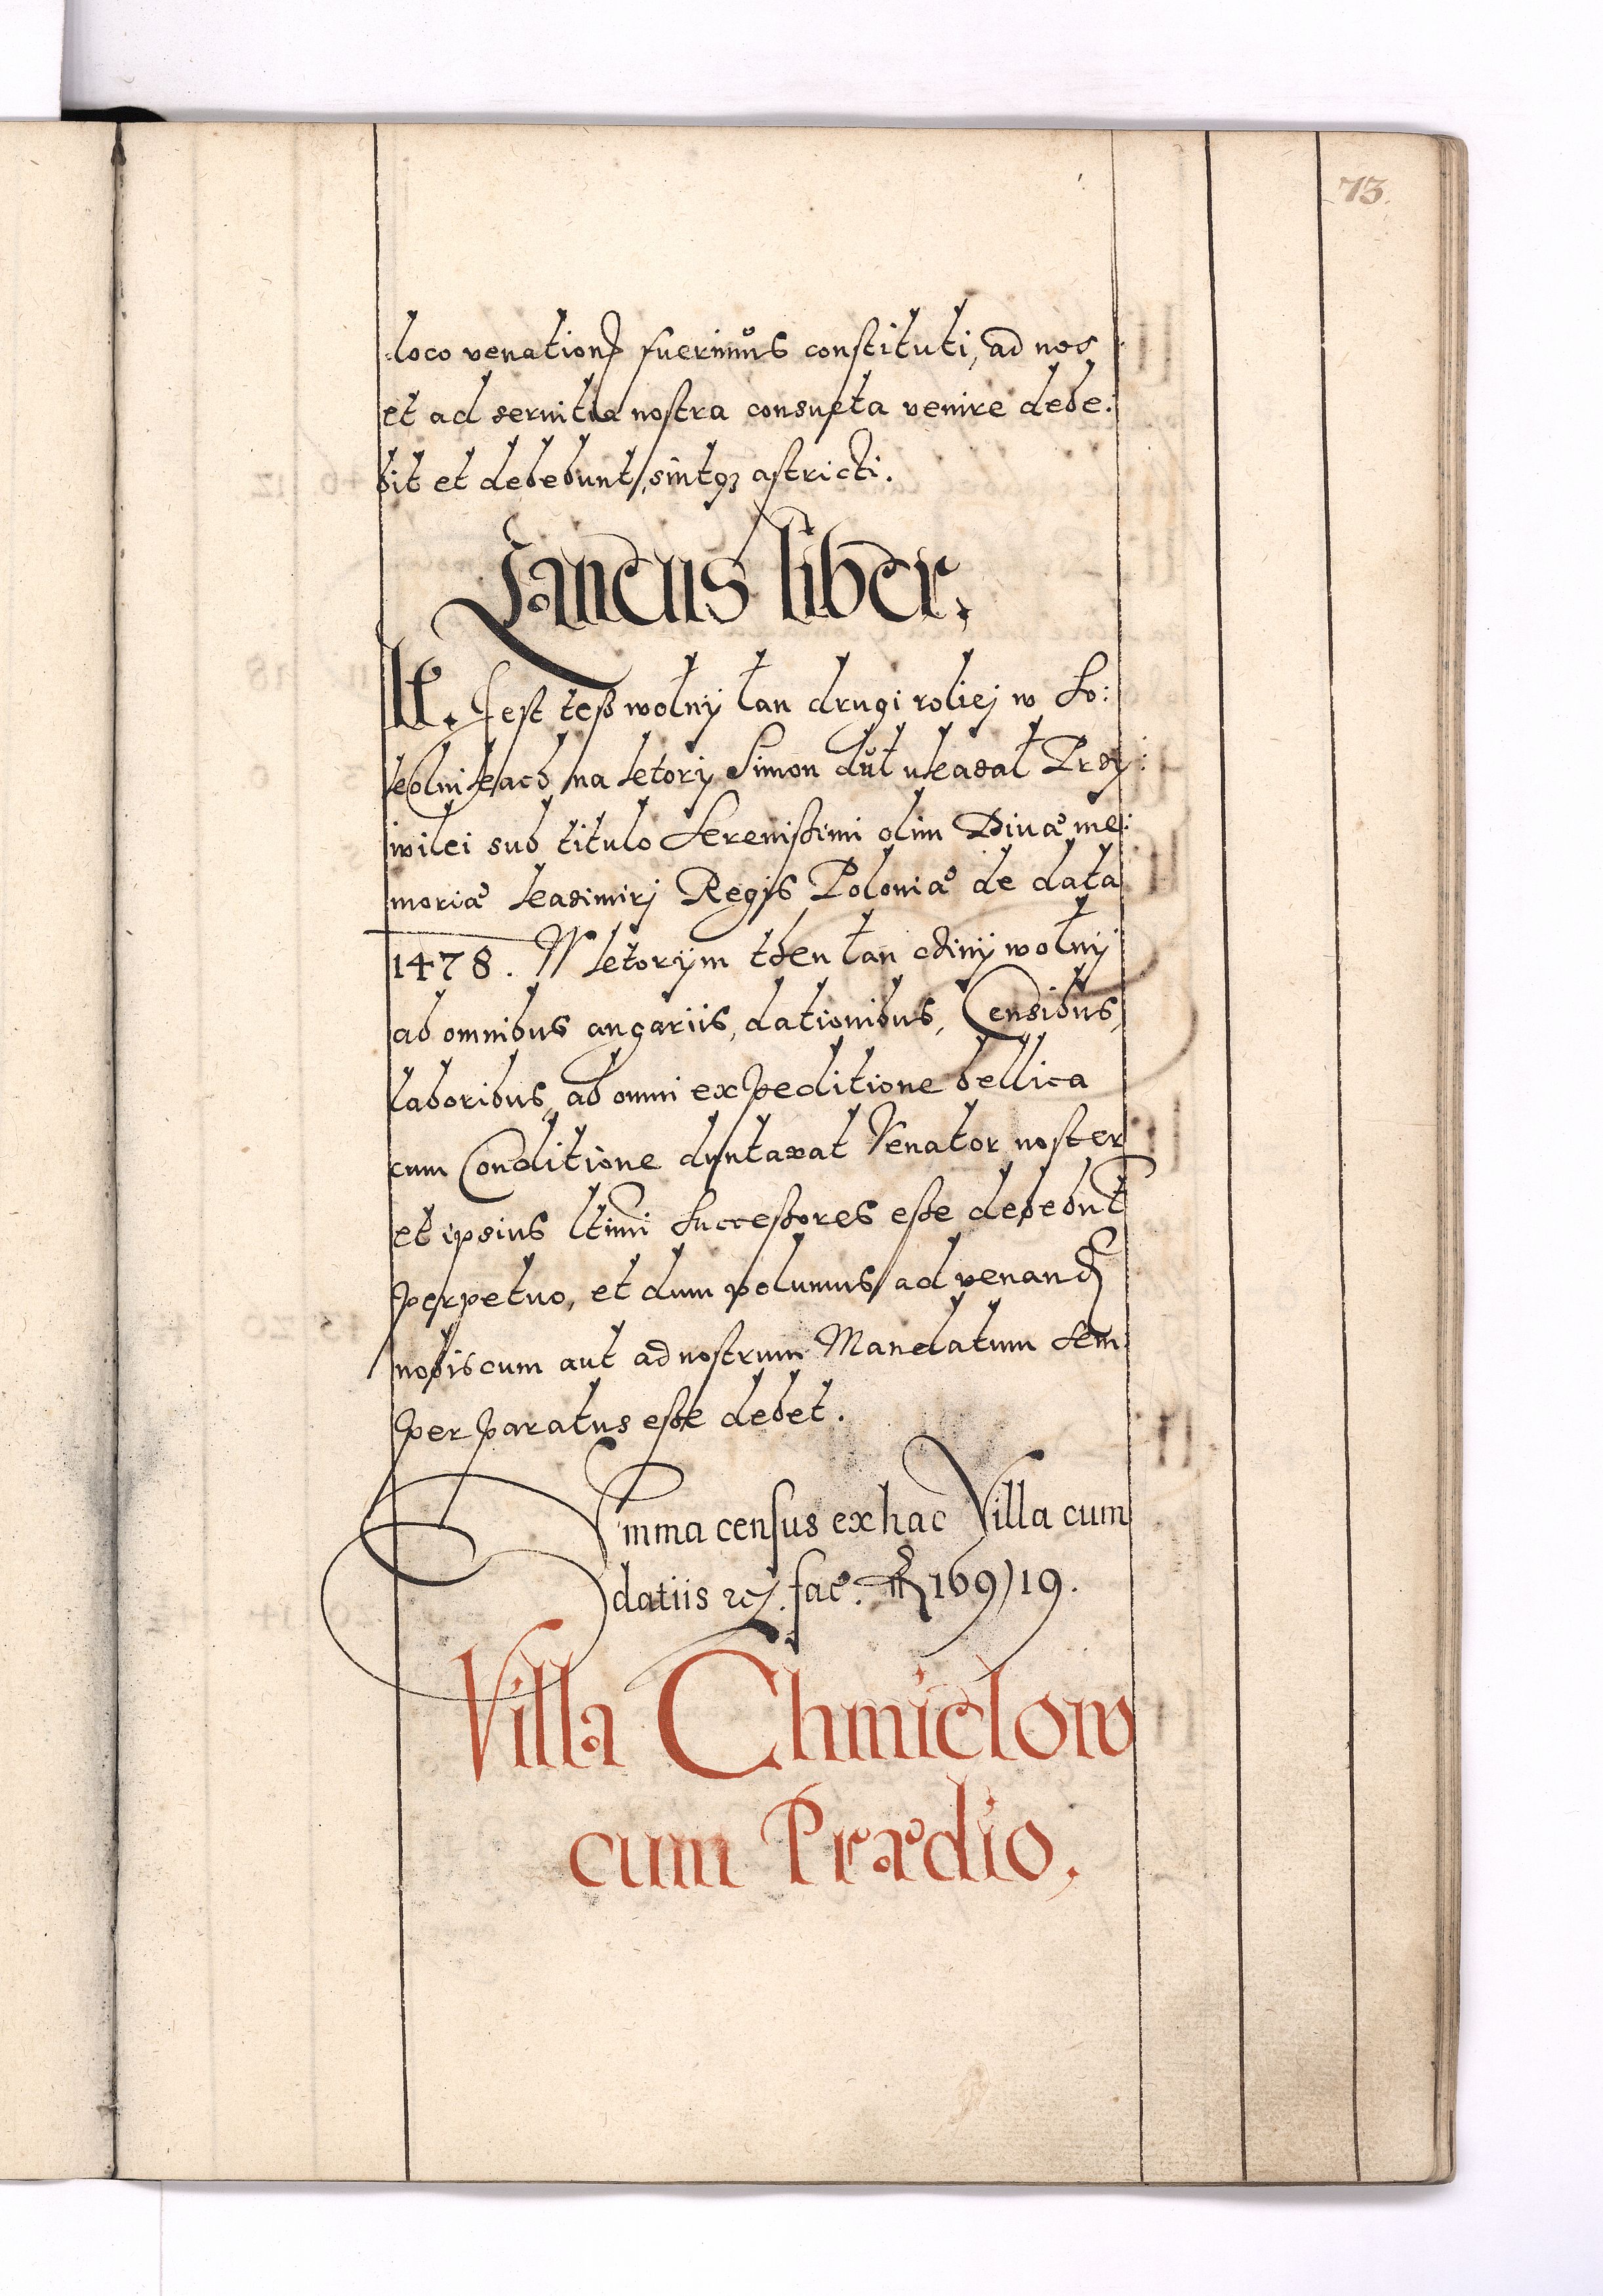 73.
loco venationis fuerimus constituti, ad nos
et ad seruitia nostra consueta venire debe:
bit et debebunt, sintq3 astricti.
Laneus liber.
It. Jest teß wolny łan drugi roliej w So:
kolnikach, na ktory Simon dul ukazal Przy:
wilei sub titulo Serenissimi olim Divæ me:
moriæ Kazimirj Regis Poloniæ de data
1478. W ktorym then łan czini wolny
ab omnibus angariis, dationibus, Censibus,
laboribus, ab omni expeditione bellica
cum Conditione duntaxat Venator noster
et ipsius ltimi Successores esse debebunt
perpetuo, et dum volumus ad venand
nobiscum aut ad nostrum Mandatum Sem
per paratus esse debet.
Summa census ex hac Villa cum
datiis rej. fac. 169/19.
Villa Chmielow
cum Prædio.